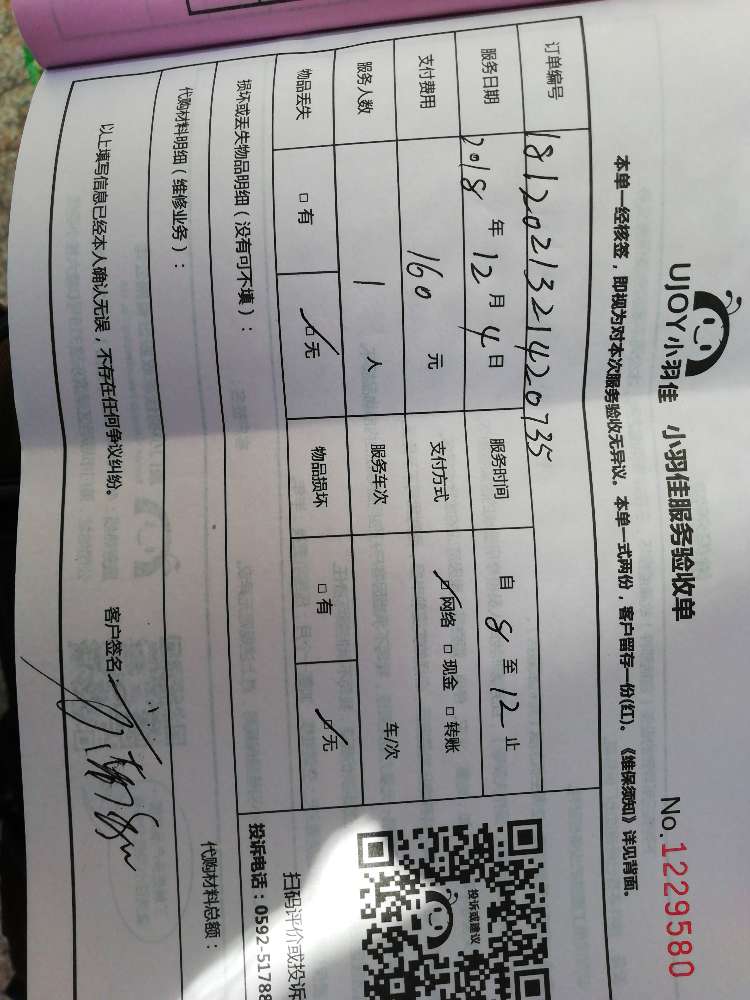 UJOY小羽佳 小羽佳服务验收单 No.1229580
本单一经核签，即视为对本次服务验收无异议。本单一式两份，客户留存一份(红)。《维保须知》详见背面。
订单编号 1812021321420735
服务日期 2018 年 12 月 4 日 服务时间 自 8 至 12 止
支付费用 160 元 支付方式 ☑ 网络 □ 现金 □ 转账
服务人数 1 人 服务车次 车/次
物品丢失 □ 有 ☑ 无 物品损坏 □ 有 ☑ 无
损坏或丢失物品明细（没有可不填）：
代购材料明细（维修业务）： 代购材料总额：
以上填写信息已经本人确认无误，不存在任何争议纠纷。 客户签名：
投诉或建议
扫码评价或投诉
投诉电话：0592-5178